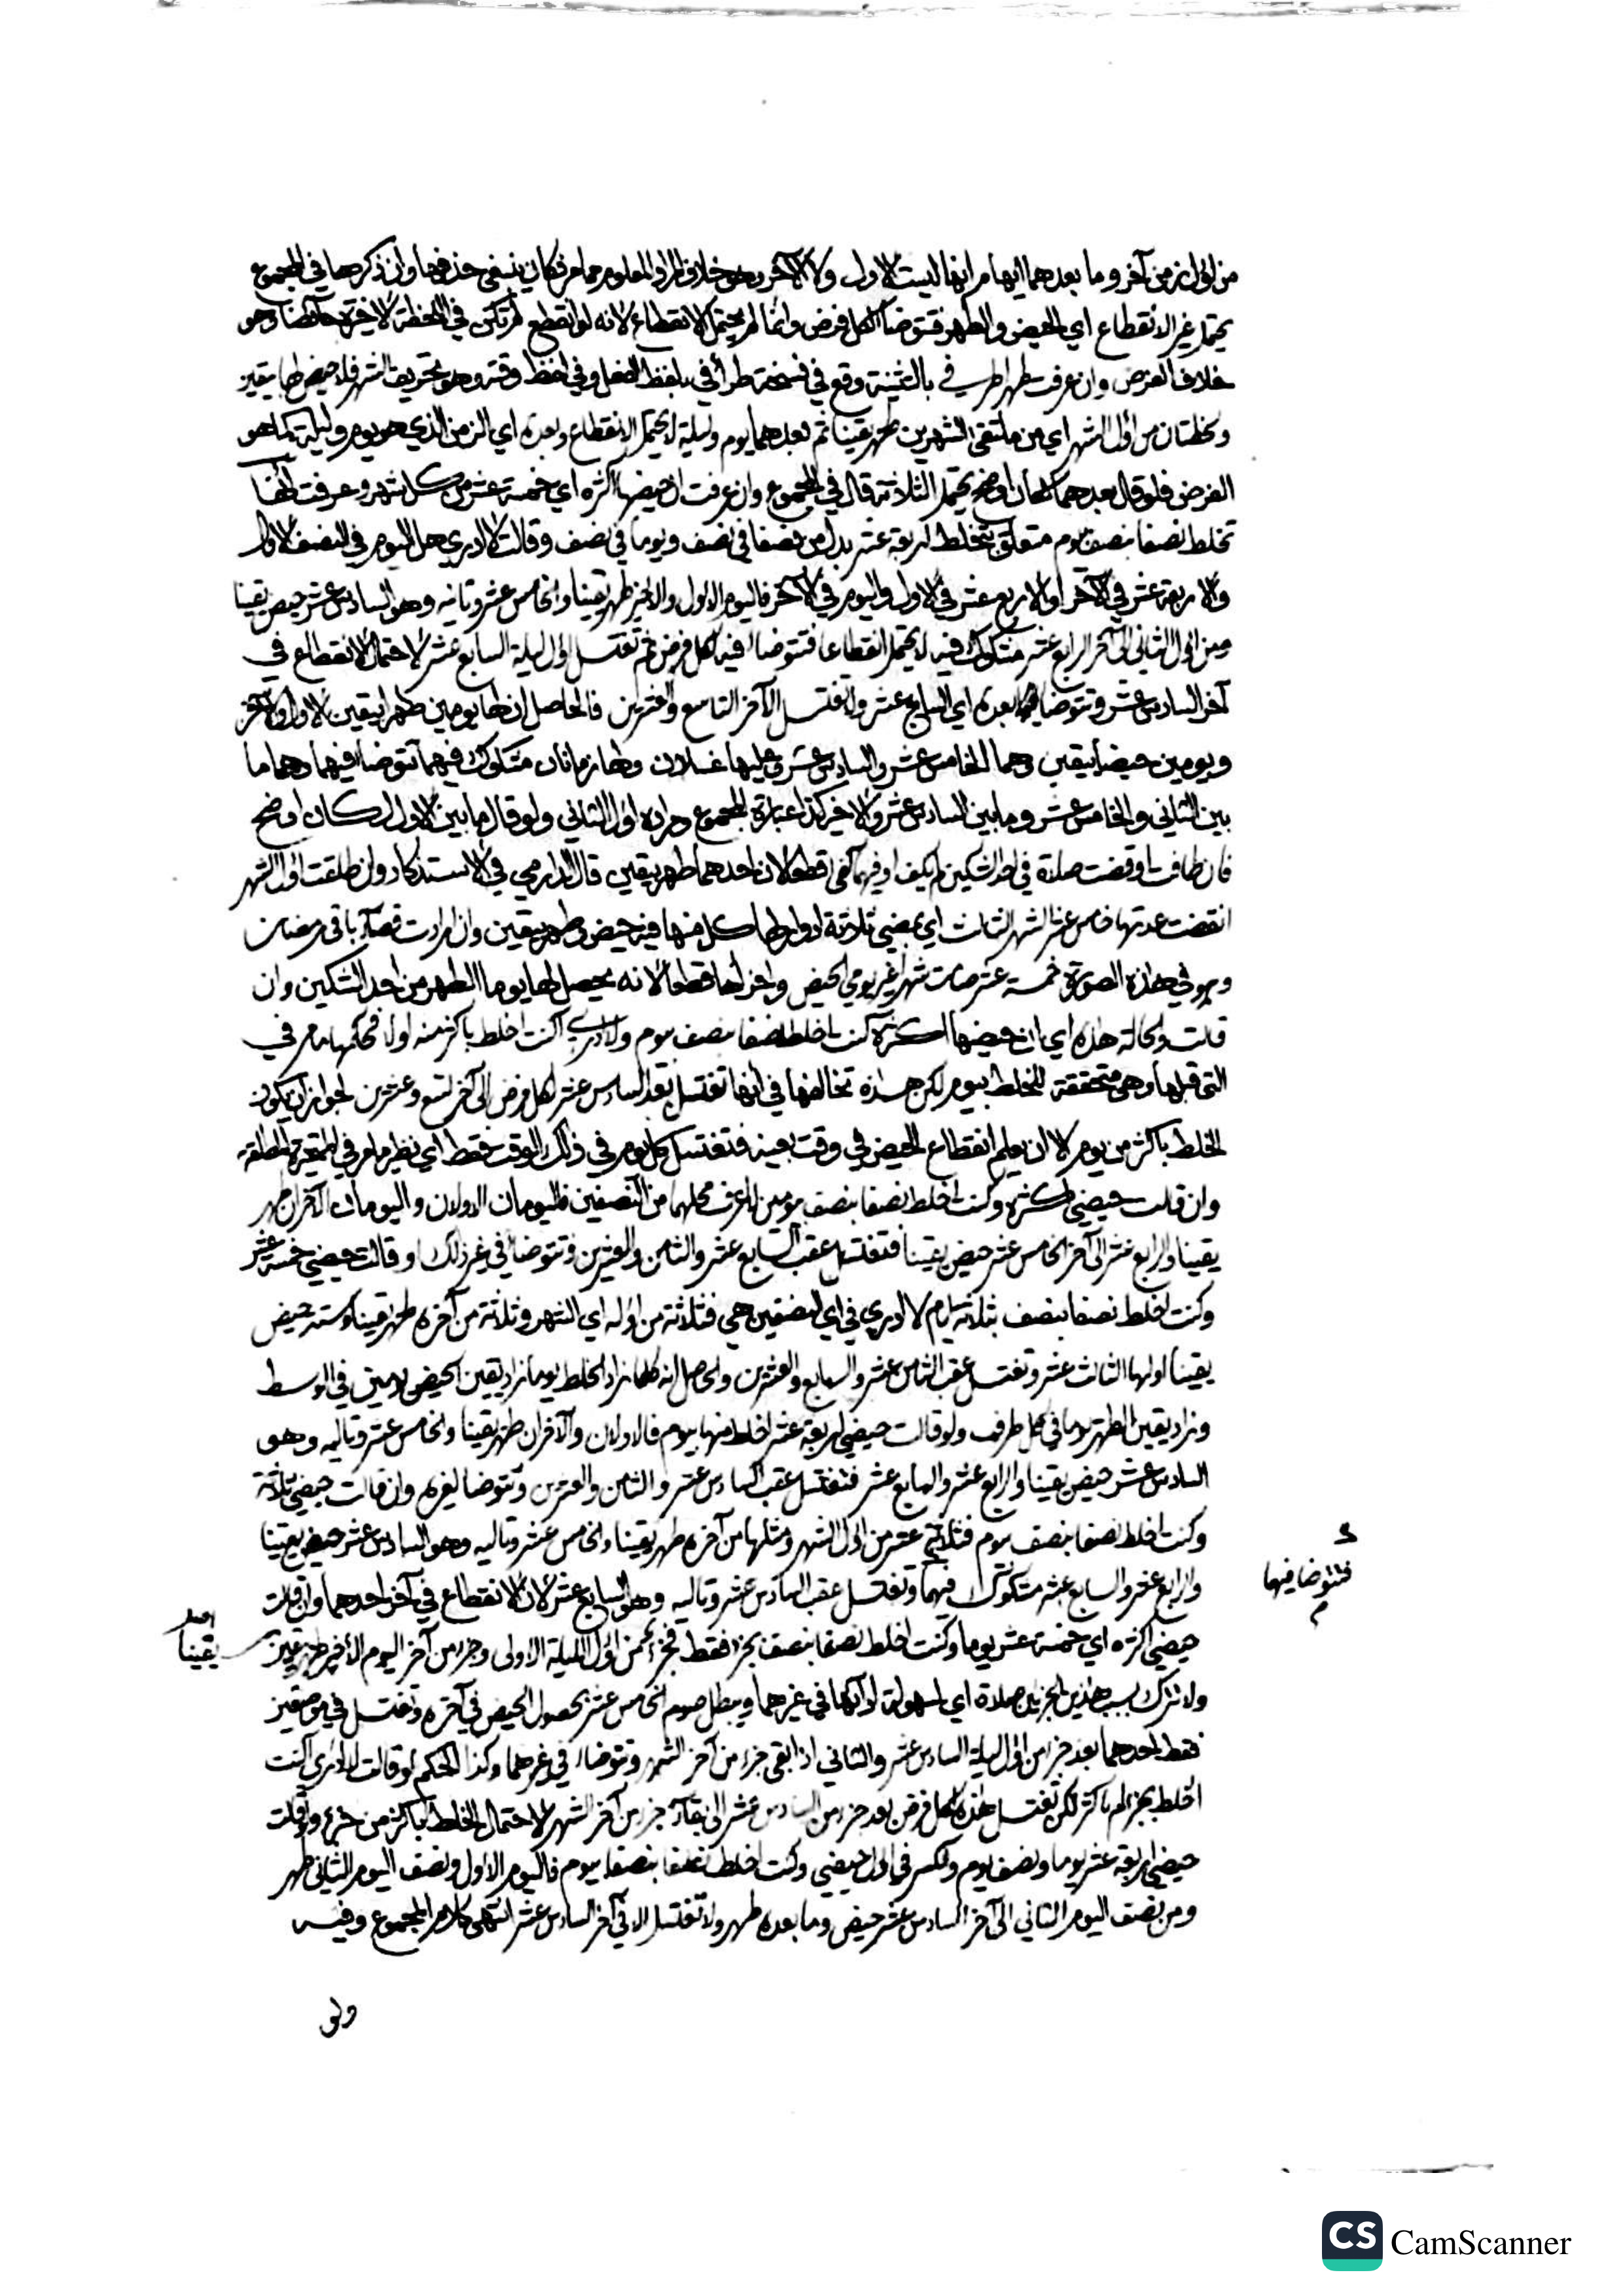 من اول زمن آخر وما بعدهما ابهام انها ليست الاول ولا الآخر وهو خلاف المراد المعلوم مما مر فكان ينبغي حذفها وان ذكرها في المجموع
يحتمل غير الانقطاع اي الحيض والطهر فتتوضأ لكل فرض وانما لم يحتمل الانقطاع لانه لو انقطع لم تكن في اللحظة الاخيرة حائضا وهو
خلاف الفرض وان عرفت طهرا طرفي بالتثنية وقع في نسخة طرأ في بلفظ الفعل وفي لحظ وقته وهو تحريف الشهر فلا حيض لها بيقين
ولحظتان من اول الشهر اي من ملتقى الشهرين طهر يقينا ثم بعدهما يوم وليلة لا يحتمل الانقطاع وبعده اي الزمن الذي هو يوم وليلة كما هو
الفرض فلو قال بعدهما كان اوضح يحتمل الثلاثة قال في المجموع وان عرفت ان حيضها اكثره اي خمسة عشر من كل شهر وعرفت انها
تخلط نصفا بنصف بيوم متعلق بتخلط اربعة عشر بدل من نصفا في نصف ويوما في نصف وقالت لا ادري هل اليوم في النصف الاول
والاربعة عشر في الآخر او الاربع عشر في الاول واليوم في الآخر فاليوم الاول والاخير طهر يقينا والخامس عشر وتاليه وهو السادس عشر حيض يقينا
ومن اول الثاني الى آخر الرابع عشر مشكوك فيه لا يحتمل انقطاعا فتتوضأ فيه لكل فرض ثم تغتسل اول ليلة السابع عشر لاحتمال الانقطاع في
آخر السادس عشر وتتوضأ لما بعده اي السابع عشر ولا تغتسل الا آخر التاسع والعشرين فالحاصل ان لها يومين طهرا بيقين الاول والآخر
ويومين حيضا بيقين وهما الخامس عشر والسادس عشر وعليها غسلان ولها زمانان مشكوك فيهما تتوضأ فيهما وهما ما
بين الثاني والخامس عشر وما بين السادس عشر والاخير كذا عبارة المجموع ومراده اول الثاني ولو قال ما بين الاول لكان اوضح
فان طافت او قضت صلاة في احد الشكين لم يكف او فيهما كفى قطعا لان احدهما طهر بيقين قال الدارمي في الاستذكار ولو طلقت اول الشهر
انقضت عدتها خامس عشر الشهر الثالث اي بمضي ثلاثة ادوار لها كل منها فيه حيض وطهر بيقين وان ارادت قضاء باقي رمضان
وهو في هذه الصورة خمسة عشر صامت شهرا غير يومي الحيض واجزأها قطعا لانه يحصل لها يوما الطهر من احد الشكين وان
قالت والحالة هذه اي ان حيضها اكثره كنت اخلط نصفا بنصف بيوم ولا ادري اكنت اخلط باكثر منه او لا فحكمها ما مر في
التي قبلها وهي متحققة للخلط بيوم لكن هذه تخالفها في انها تغتسل بعد السادس عشر لكل فرض الى آخر تسع وعشرين لجواز ان يكون
الخلط باكثر من يوم الا ان يعلم انقطاع الحيض في وقت بعينه فتغتسل كل يوم في ذلك الوقت فقط اي نظير ما مر في المتحيرة المطلقة
وان قالت حيضي اكثره وكنت اخلط نصفا بنصف بيومين لا اعرف محلهما من النصفين فاليومان الاولان واليومان الآخران طهر
يقينا والرابع عشر الى آخر الخامس عشر حيض يقينا فتغتسل عقب السابع عشر والثامن والعشرين وتتوضأ في غير ذلك او قالت حيضي خمسة عشر
وكنت اخلط نصفا بنصف بثلاثة ايام لا ادري في اي النصفين هي فثلاثة من اوله اي الشهر وثلاثة من آخره طهر يقينا وستة حيض
يقينا اولها الثالث عشر وتغتسل عقب الثامن عشر والسابع والعشرين والحاصل انه كلما زاد الخلط يوما زاد يقين الحيض يومين في الوسط
وزاد يقين الطهر يوما في كل طرف ولو قالت حيضي اربعة عشر اخلط منها بيوم فالاولان والآخران طهر يقينا والخامس عشر وتاليه وهو
السادس عشر حيض يقينا والرابع عشر والسابع عشر فتغتسل عقب السادس عشر والثامن والعشرين وتتوضأ لغيرهم وان قالت حيضي ثلاثة
وكنت اخلط نصفا بنصف بيوم فثلاثة عشر من اول الشهر ومثلها من آخره طهر يقينا والخامس عشر وتاليه وهو السادس عشر حيض يقينا
والرابع عشر والسابع عشر مشكوك فيهما وتغتسل عقب السادس عشر وتاليه وهو السابع عشر لان الانقطاع في آخر احدهما وان قالت
فتتوضا فيها
حيضي اكثره اي خمسة عشر يوما وكنت اخلط نصفا بنصف بجزء فقط فجزء من اول الليلة الاولى وجزء من آخر اليوم الأخير طهر بيقين
يقينا
ولا تترك بسبب هذين الجزئين صلاة اي لسهولة ادائها في غيرهما ويبطل صوم الخامس عشر بحصول الحيض في آخره وتغتسل في موضعين
فقط احدهما بعد جزء من اول ليلة السادس عشر والثاني اذا بقي جزء من آخر الشهر وتتوضأ في غيرهما وكذا الحكم لو قالت لا ادري اكنت
اخلط بجزء ام باكثر لكن تغتسل هذه لكل فرض بعد جزء من السادس عشر الى بقاء جزء من آخر الشهر لاحتمال الخلط باكثر من جزء ولو قالت
حيضي اربعة عشر يوما ونصف يوم والكسر في اول حيضي وكنت اخلط نصفا بنصف بيوم فاليوم الاول ونصف اليوم الثاني طهر
ومن نصف اليوم الثاني الى آخر السادس عشر حيض وما بعده طهر ولا تغتسل الا في آخر السادس عشر انتهى كلام المجموع وفيه
ولو
CS CamScanner